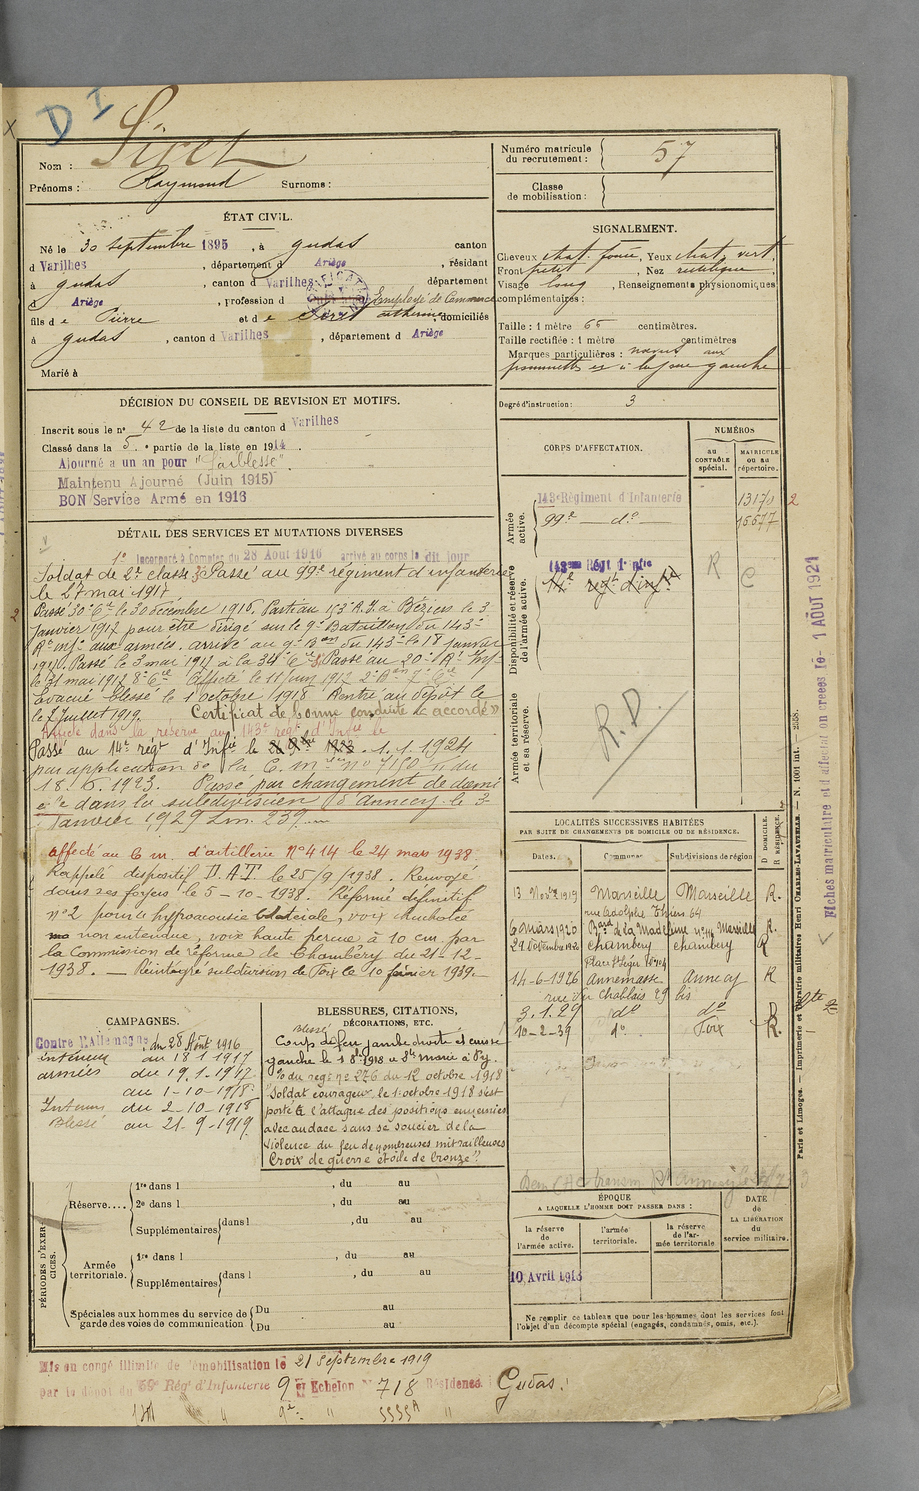 D I
Nom : Siret
Prénoms : Raymond Surnoms :
Numéro matricule du recrutement : 57
Classe de mobilisation :
ÉTAT CIVIL.
Né le 30 septembre 1895, à Gudas canton
d Varilhes, département d Ariège, résidant
à Gudas, canton d Varilhes département
d Ariège, profession d Employé de Commerce
fils de Pierre et de Siret Catherine, domiciliés
à Gudas, canton d Varilhes, département d Ariège
Marié à
SIGNALEMENT.
Cheveux chat. foncé, Yeux chat. vert,
Front petit, Nez rectiligne,
Visage long, Renseignements physionomiques
complémentaires :
Taille : 1 mètre 66 centimètres.
Taille rectifiée : 1 mètre centimètres
Marques particulières : nævus aux
pommettes et à la joue gauche
Degré d'instruction : 3
DÉCISION DU CONSEIL DE REVISION ET MOTIFS.
Inscrit sous le n° 42 de la liste du canton d Varilhes
Classé dans la 5e partie de la liste en 1914.
Ajourné a un an pour "Faiblesse".
Maintenu Ajourné (Juin 1915)
BON Service Armé en 1916
CORPS D'AFFECTATION.
NUMÉROS
au CONTRÔLE spécial.
MATRICULE ou au répertoire.
Armée active.
143e Régiment d'Infanterie 13174
99e — do 15577
Disponibilité et réserve de l'armée active.
143eme Régt d'Infie R C
14e regt d'infie
Armée territoriale et sa réserve.
R.D.
DÉTAIL DES SERVICES ET MUTATIONS DIVERSES
1° Incorporé à Compter du 28 Août 1916 arrivé au corps le dit jour
Soldat de 2e classe. Passé au 99e régiment d'infanterie
le 27 mai 1917.
Passé 30e Cie le 30 décembre 1916. Parti au 153e R.I. à Béziers le 3
Janvier 1917 pour être dirigé sur le 9e Bataillon du 143e
Rt inf. aux armées. arrivé au 9e Bon du 143e le 18 janvier
1917. Passé le 3 mai 1917 à la 34e Cie. Passé au 20e Rt Inf.
le 31 mai 1917 8e Cie Affecté le 11 juin 1917 2e Bon 7e Cie
Evacué blessé le 1 octobre 1918 Rentré au dépôt le
le 7 juillet 1919. Certificat de bonne conduite « accordé »
Affecté dans la réserve au 143e regt d'Infie le
Passé au 14e régt d'Infie le 1.1.1924
par application de la C. mlle No 7150 du
18.6.1923. Passé par changement de domi
cile dans la subdivision d'Annecy le 3
Janvier 1929 Lm. 239
affecté au C m. d'artillerie No 414 le 24 mars 1938.
Rappelé dispositif D.A.T. le 25/9/1938. Renvoyé
dans ses foyers le 5-10-1938. Réformé définitif
no 2 pour « hypoacousie bilatérale, voix chuchotée
non entendue, voix haute perçue à 10 cm. par
la Commission de réforme de Chambéry du 21-12-
1938. — Réintègre subdivision de Foix le 10 février 1939.
LOCALITÉS SUCCESSIVES HABITÉES
PAR SUITE DE CHANGEMENTS DE DOMICILE OU DE RÉSIDENCE.
Dates. Communes Subdivisions de région D DOMICILE. R RÉSIDENCE.
13 Novbre 1919 Marseille Marseille R.
rue Adolphe Thiers 64
6 mars 1920 Bard de la Madeleine no 116 Marseille R
29 Octobre 1920 Chambéry Chambéry R
Place St Léger
14-6-1926 Annemasse Annecy R
rue du Chablais 29 bis
3.1.29 do do D
10-2-39 do Foix R.
CAMPAGNES.
Contre l'Allemagne, du 28 Août 1916
intérieur au 18 1 1917
armées du 19.1.1917
au 1-10-1918
Intérieur du 2-10-1918
Blessé au 21-9-1919.
BLESSURES, CITATIONS,
DÉCORATIONS, ETC.
Blessé
Coup de feu jambe droite et cuisse
gauche le 1 8bre 1918 à Ste Marie à Py.
O du regt no 276 du 12 octobre 1918
"Soldat courageux, le 1 octobre 1918 s'est
porté à l'attaque des positions ennemies
avec audace sans se soucier de la
violence du feu de nombreuses mitrailleuses
Croix de guerre étoile de bronze".
PÉRIODES D'EXERCICES.
Réserve....
1re dans l , du au
2e dans l , du au
Supplémentaires dans l , du au
Armée territoriale.
1re dans l , du au
Supplémentaires dans l , du au
Spéciales aux hommes du service de garde des voies de communication
Du au
Du au
ÉPOQUE
A LAQUELLE L'HOMME DOIT PASSER DANS :
la réserve de l'armée active.
l'armée territoriale.
la réserve de l'armée territoriale
DATE DE LA LIBÉRATION du service militaire.
10 Avril 1913
Ne remplir ce tableau que pour les hommes dont les services font
l'objet d'un décompte spécial (engagés, condamnés, omis, etc.).
Mis en congé illimité de démobilisation le 21 Septembre 1919
par le dépôt du 59e Rég. d'Infanterie 9e Echelon No 718 Résidence Gudas.
Fiches matriculaire et d'affectation créées le 1 AOUT 1921
Paris et Limoges. — Imprimerie et librairie militaires Henri CHARLES-LAVAUZELLE. — N. 1001 int. — 2558.